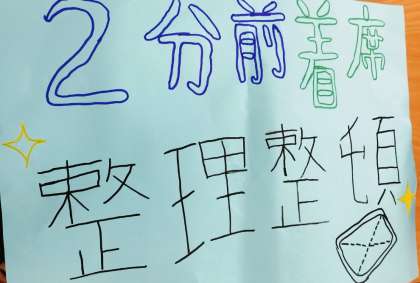 2分前着席
整理整頓